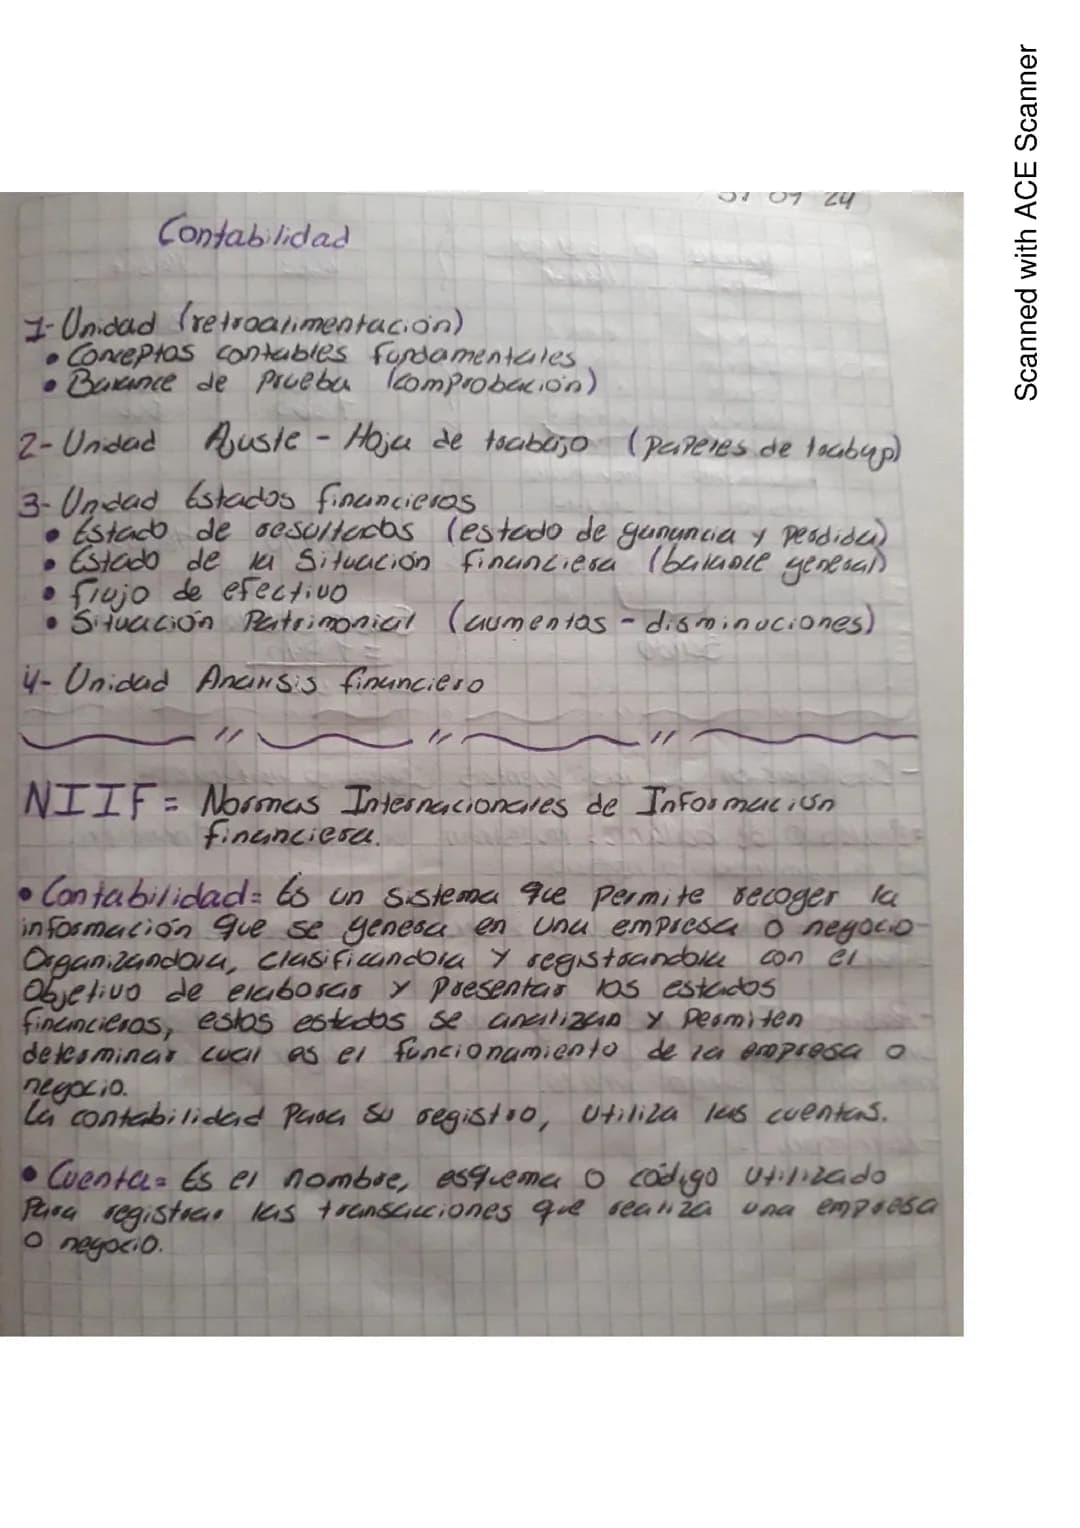 09 24
Contabilidad
1- Unidad (retroalimentación)
• Conceptos contables fundamentales
• Balance de Prueba (comprobación)
2- Unidad Ajuste - Hoja de trabajo (papeles de trabajo)
3- Unidad Estados financieros
• Estado de resultados (estado de ganancia y perdida)
• Estado de la Situación financiera (balance general)
• flujo de efectivo
• Situación Patrimonial (aumentos - disminuciones)
4- Unidad Analisis financiero
NIIF = Normas Internacionales de Información
financiera.
• Contabilidad= Es un sistema que permite recoger la
información que se genera en una empresa o negocio
Organizandola, clasificandola y registrandola con el
Objetivo de elaborar y presentar los estados
financieros, estos estados se analizan y permiten
determinar cual es el funcionamiento de la empresa o
negocio.
La contabilidad para su registro, utiliza las cuentas.
• Cuenta= Es el nombre, esquema o código utilizado
Para registrar las transacciones que realiza una empresa
o negocio.
Scanned with ACE Scanner